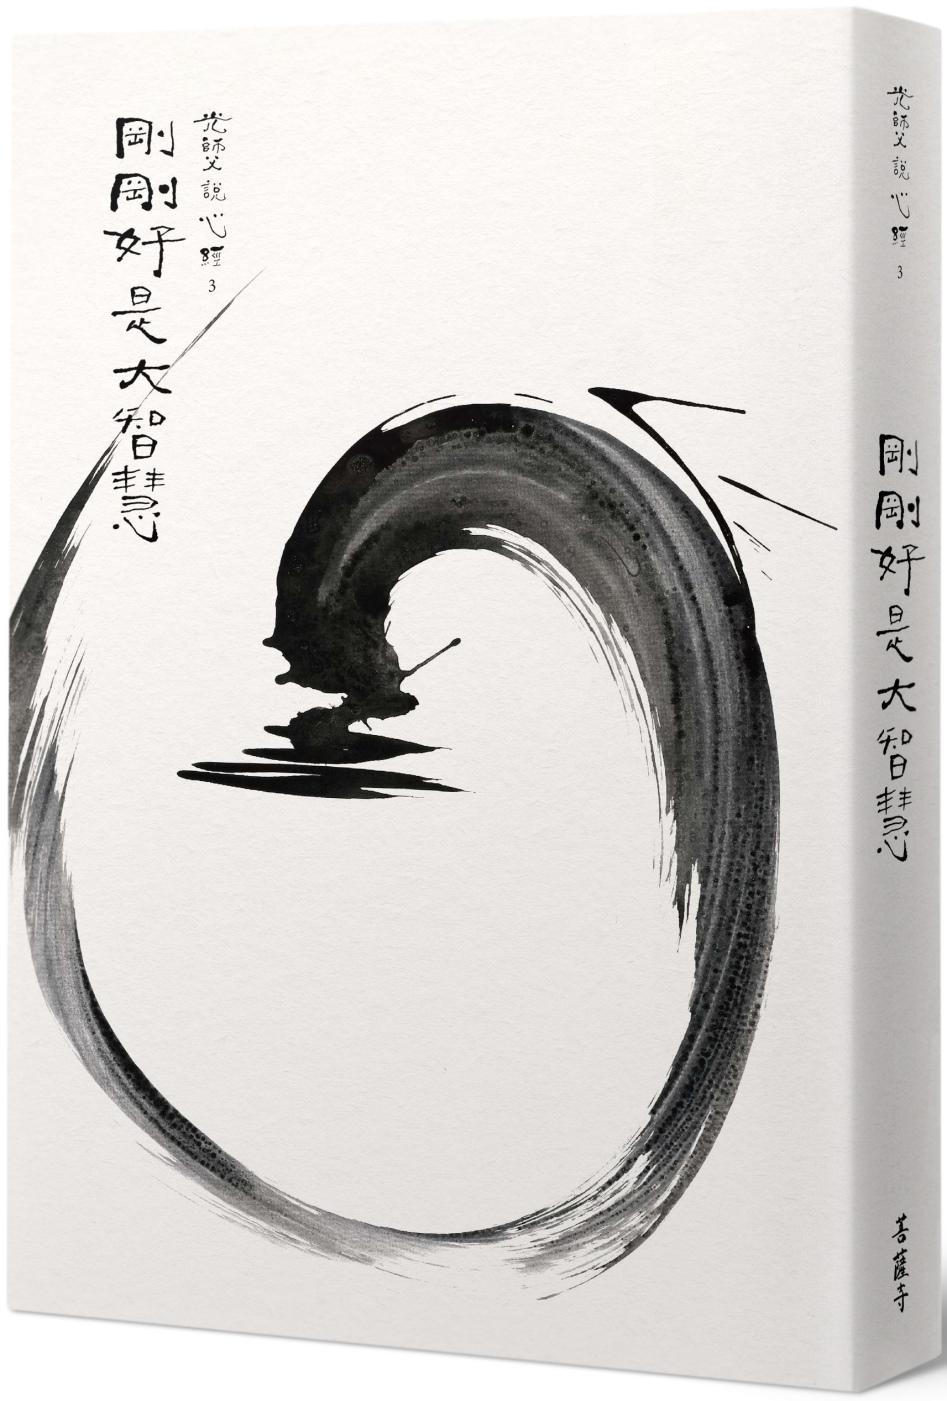 光師父說心經3
剛剛好是大智慧
光師父說心經3
剛剛好是大智慧
菩薩寺